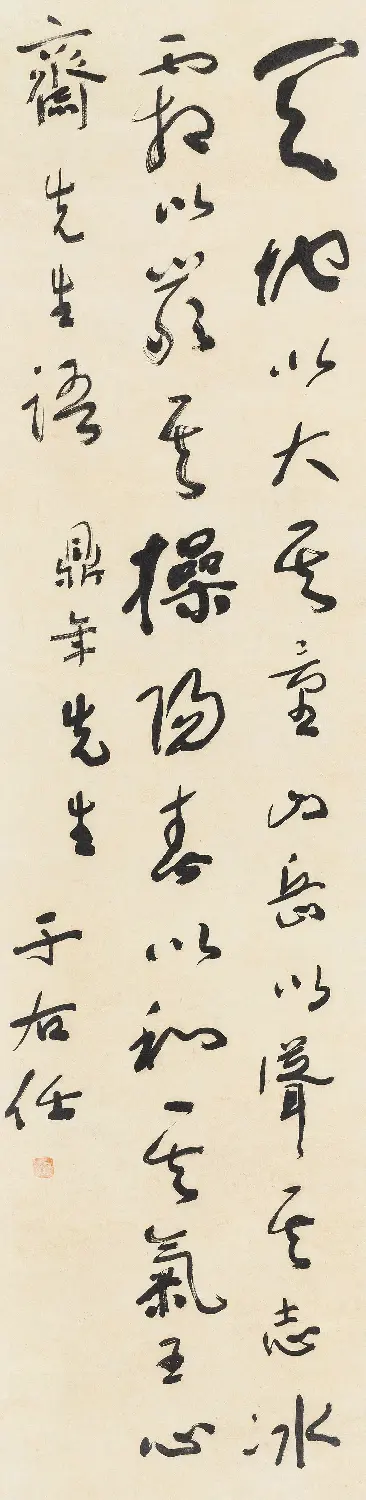 天地以大其量山岳以聳其志冰
霜以嚴其操陽春以和其氣王心
齋先生語
鼎年先生
于右任